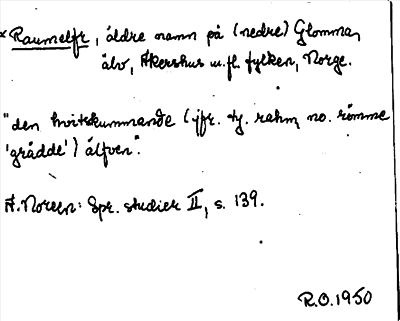 * Raumelfr, äldre namn på (nedre) Glomma,
älv, Akershus m.fl. fylken, Norge.
"den hvitskummande (jfr. ty. rahm, no. rømme
'grädde') älfven".
A. Noreen: Spr. studier II, s. 139.
R.O. 1950